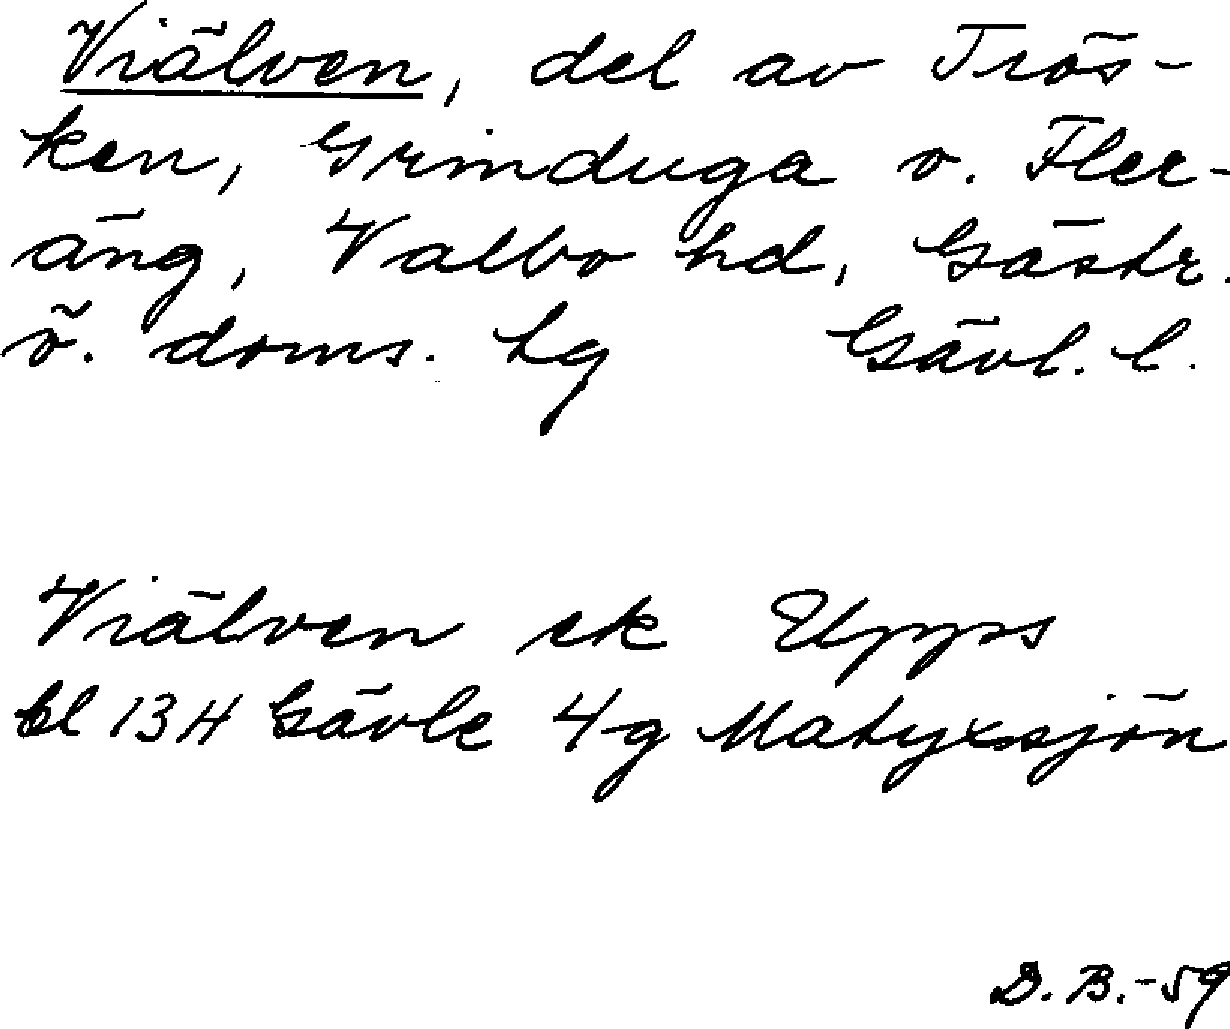 Viälven, del av Trös-
ken, Grinduga o. Fler-
äng, Valbo hd, Gästr.
ö. doms. lg Gävl. l.
Viälven ek Upps
bl 13H Gävle 4g Matyxsjön
D. B. -59